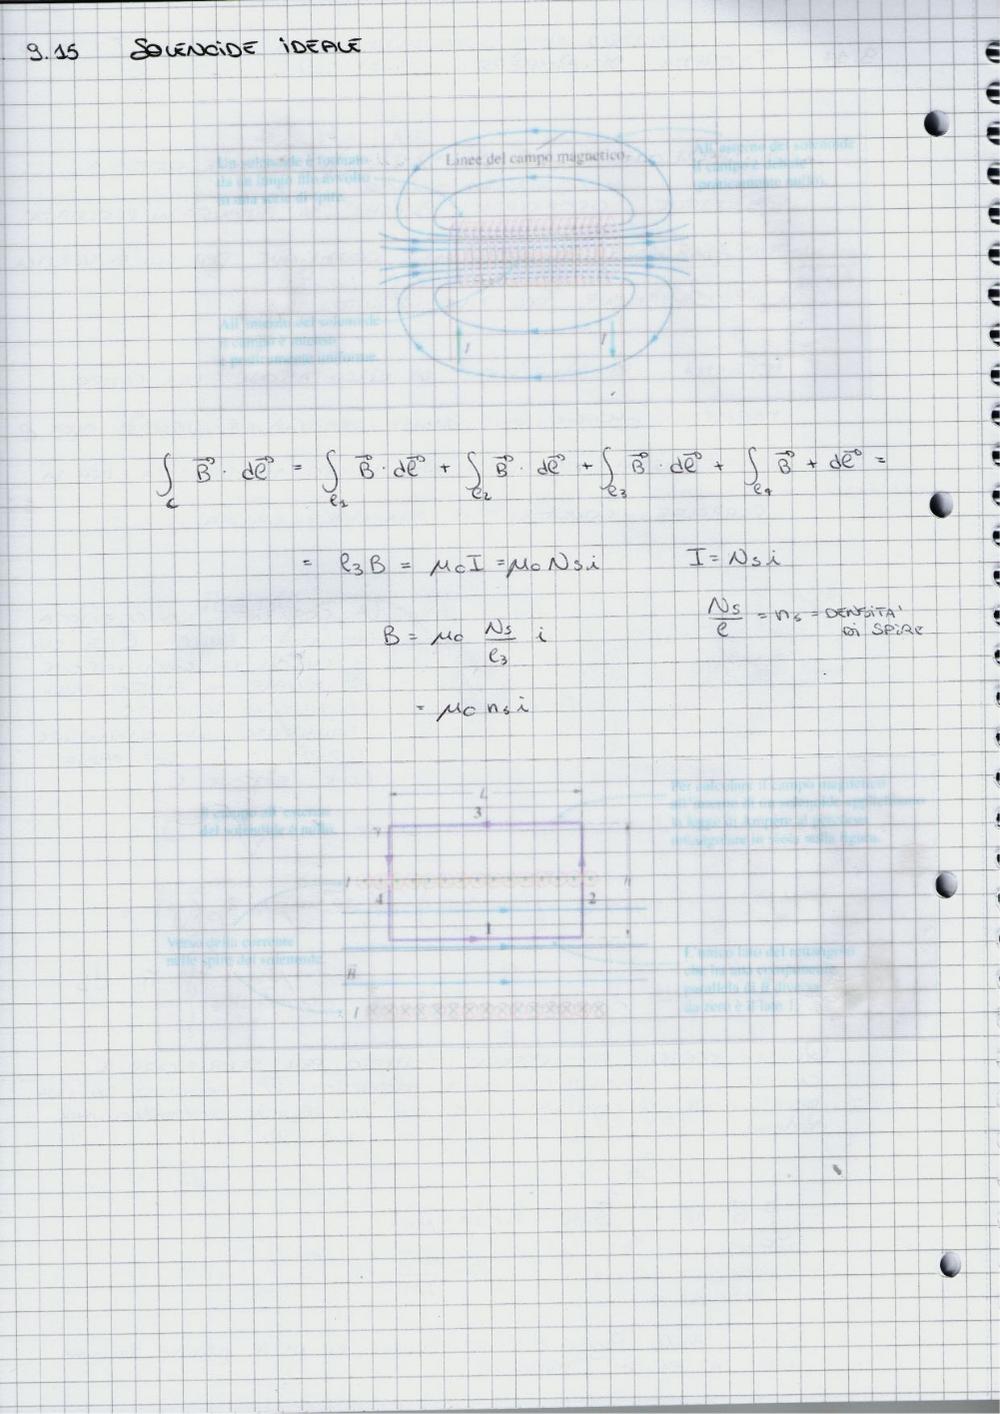 9.15 SOLENOIDE IDEALE
Un solenoide è formato
da un lungo filo avvolto
in una serie di spire.
Linee del campo magnetico
All'esterno del solenoide
il campo è debole
(praticamente nullo).
All'interno del solenoide
il campo è intenso
e praticamente uniforme.
I
I
∫c B⃗ · dℓ⃗ = ∫ℓ1 B⃗ · dℓ⃗ + ∫ℓ2 B⃗ · dℓ⃗ + ∫ℓ3 B⃗ · dℓ⃗ + ∫ℓ4 B⃗ + dℓ⃗ =
= ℓ3 B = μ0 I = μ0 Ns i I = Ns i
Ns/ℓ = ns = DENSITA' DI SPIRE
B = μ0 Ns/ℓ3 i
= μ0 ns i
Il campo all'esterno
del solenoide è nullo.
L
3
Per calcolare il campo magnetico
la legge di Ampère al percorso
rettangolare in viola nella figura.
4
2
1
Verso della corrente
nelle spire del solenoide.
B
I
L'unico lato del rettangolo
che ha una componente
parallela di B diversa
da zero è il lato 1.